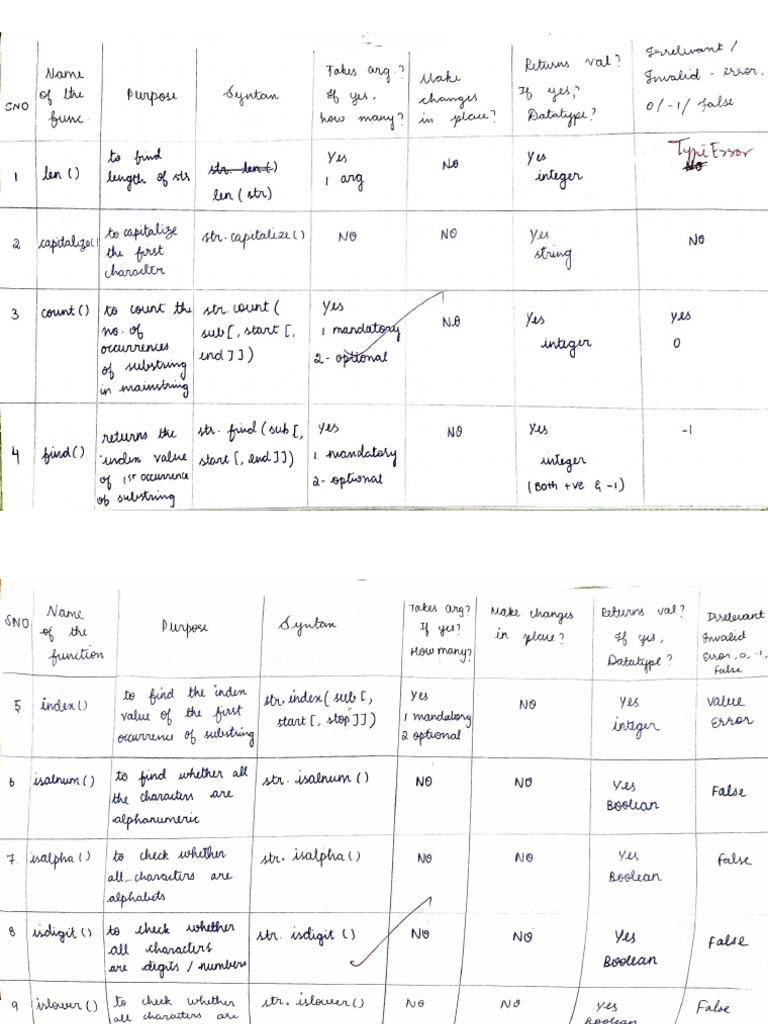 SNO
Name of the func.
Purpose
Syntan
Takes arg.? If yes, how many?
Make changes in place?
Returns val? If yes? Datatype?
Irrelevant / Invalid - error, 0/-1/ false
1
len ()
to find length of str
str. len ()
len (str)
Yes
1 arg
NO
Yes
integer
TypeError
NO
2
capitalize()
to capitalize the first character
str. capitalize ()
NO
NO
Yes
string
NO
3
count ()
to count the no. of occurrences of substring in mainstring
str. count ( sub [, start [, end ]])
Yes
1 mandatory
2 - optional
NO
Yes
integer
yes
0
4
find()
returns the index value of 1st occurrence of substring
str. find (sub [, start [, end ]])
Yes
1 mandatory
2 - optional
NO
Yes
integer
(Both +ve & -1)
-1
SNO
Name of the function
Purpose
Syntan
Takes arg? If yes? How many?
Make changes in place?
Returns val? If yes, Datatype?
Irrelevant Invalid Error, 0, -1, False
5
index ()
to find the index value of the first occurrence of substring
str. index ( sub [, start [, stop ]])
Yes
1 mandatory
2 optional
NO
Yes
integer
Value Error
6
isalnum ()
to find whether all the characters are alphanumeric
str. isalnum ()
NO
NO
Yes
Boolean
False
7
isalpha ()
to check whether all characters are alphabets
str. isalpha ()
NO
NO
Yes
Boolean
False
8
isdigit ()
to check whether all characters are digits / numbers
str. isdigit ()
NO
NO
Yes
Boolean
False
9
islower ()
to check whether all characters are
str. islower()
NO
NO
Yes
Boolean
False